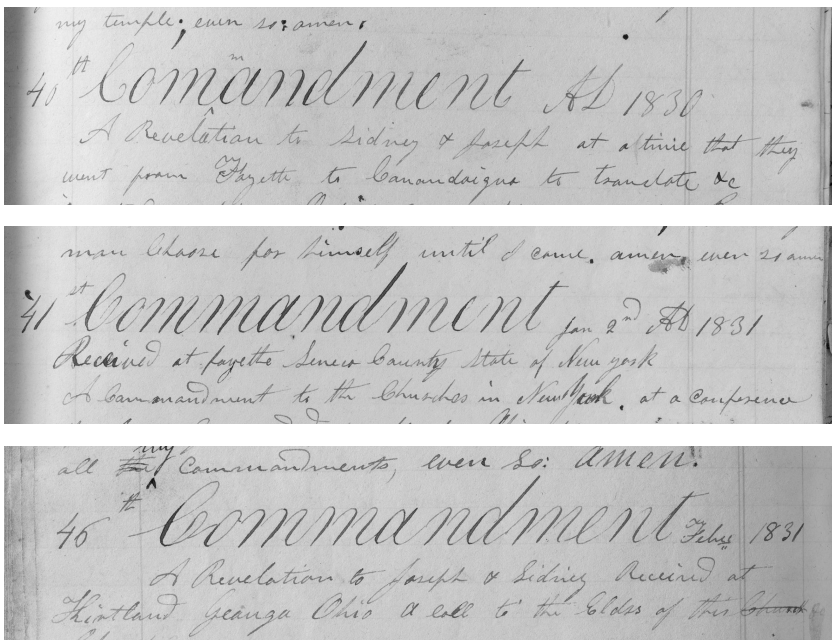 my temple; even so: amen.
40th Comandment AD 1830
A Revelation to Sidney & Joseph at a time that they
went from Fayette to Canandaigua to translate &c
man Choose for himself until I come. amen, even so amen
41st Commandment Jan 2nd AD 1831
Received at fayette Seneca County State of New york
A Commandment to the Churches in New York. at a conference
all my commandments, even so: amen.
46th Commandment Feby 1831
A Revelation to Joseph & Sidney Received at
Kirtland Geauga Ohio A call to the Elders of this Church